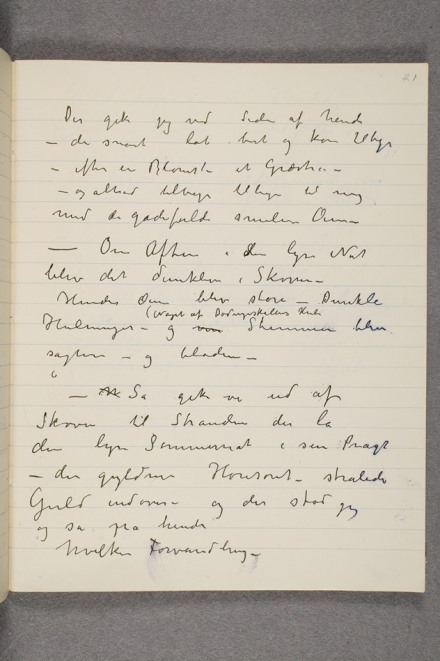 21
Der gik jeg ved Siden af hende
– der snart løb bort og kom tilbage
– efter en Blomst – et Græstrå –
– og altid tilbage tilbage til mig
med de gådefulde smilen Øine –
— Om Aften i den lyse Nat
blev det dunklere i Skoven –
Hendes Øine blev store – Dunkle
– og Stemmen blev
sagtere – og blødere –
– Så gik vi ud af
Skoven til Stranden der lå
den lyse Sommernat i sin Pragt
– den gyldne Horisont – strålede
Guld indover – og der stod jeg
og så på hende
Hvilken Forvandling –